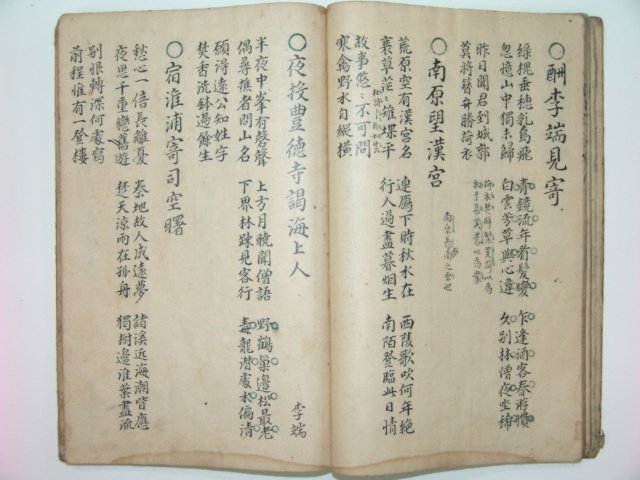 ○酬李端見寄
綠槐垂穗乳烏飛 青鏡流年看髮變 乍逢酒客春游慣
忽憶山中獨未歸 白雲芳草與心違 久別林僧夜坐稀
昨日聞君到城郭
莫將簪弁勝荷衣
○南原望漢宮
荒原空有漢宮名 連鴈下時秋水在 西陵歌吹何年絶
衰草茫〻雉堞平 行人過盡暮烟生 南陌登臨此日情
故事悠〻不可問
寒禽野水自縱橫
○夜投豊德寺謁海上人 李端
半夜中峯有磬聲 上方月曉聞僧語 野鶴巢邊松最老
偶尋樵者問山名 下界林踈見客行 毒龍潛處水偏清
願得遠公知姓字
焚香洗鉢過餘生
○宿淮浦寄司空曙
愁心一倍長離憂 秦地故人成遠夢 諸溪近海潮皆應
夜思千重戀舊遊 楚天涼雨在孤舟 獨樹邊淮葉盡流
別恨轉深何處寫
前程惟有一登樓